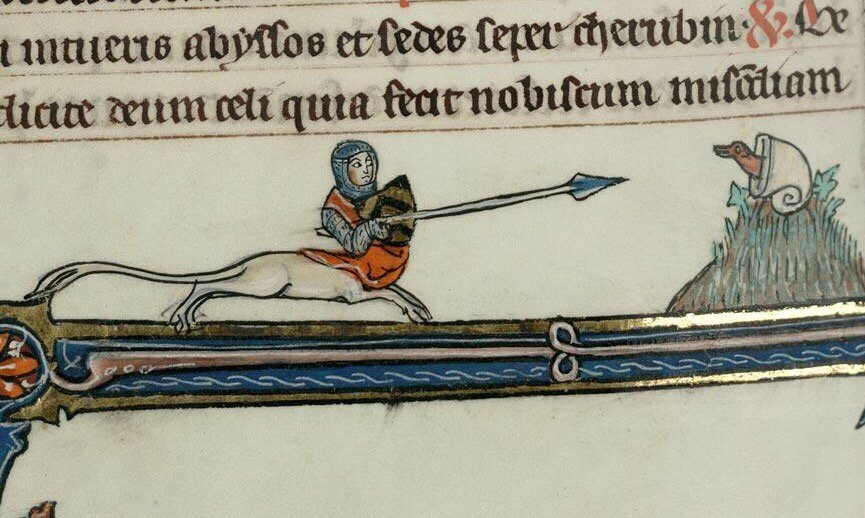 intueris abyssos et sedes seper cherubin· &. Be
dicite deum celi quia fecit nobiscum misćdiam